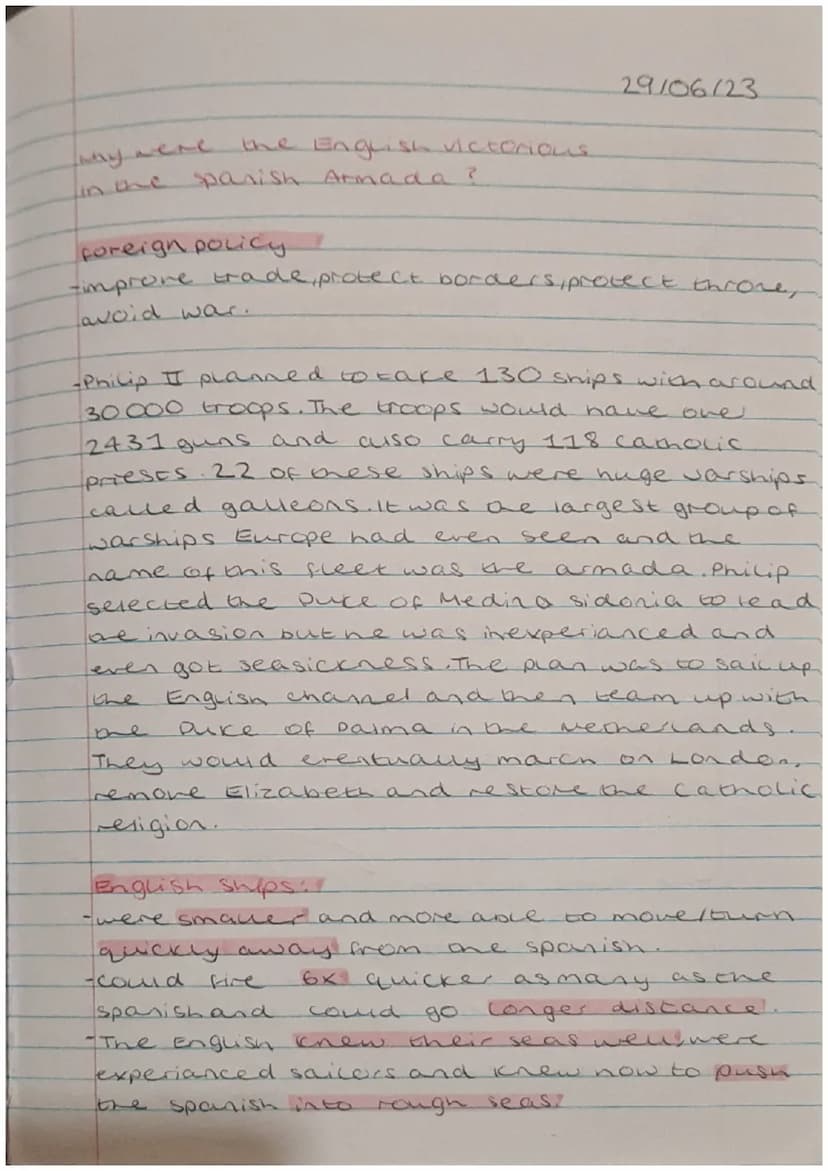 29/06/23
why were the English victorious
in the spanish Armada?
foreign policy
-improve trade, protect borders, protect throne,
avoid war.
-Philip II planned to take 130 ships with around
30000 troops. The troops would have over
2431 guns and also carry 118 catholic
priests. 22 of these ships were huge warships
called galleons. It was the largest group of
warships Europe had even seen and the
name of this fleet was the armada. Philip
selected the Duke of Medina sidonia to lead
the invasion but he was inexperianced and
even got seasickness. The plan was to sail up
the English channel and then team up with
the Duke of Palma in the Netherlands.
They would eventually march on London,
remove Elizabeth and restore the catholic
religion.
English ships:
-were smaller and more able to move/turn
quickly away from the spanish.
-could fire 6x quicker as many as the
spanish and could go longer distance.
-The English knew their seas well, were
experianced sailors and knew how to push
the spanish into rough seas.